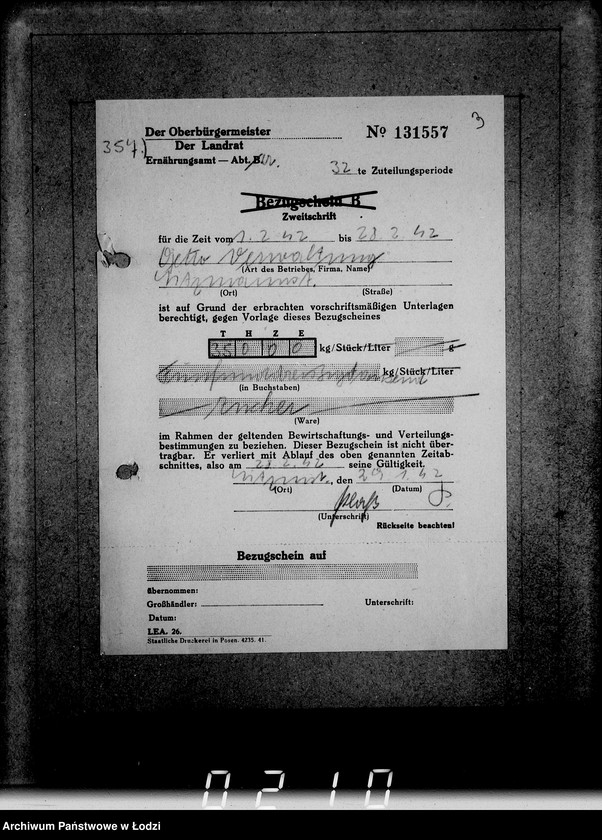 3
Der Oberbürgermeister
Nº 131557
357)
Der Landrat
Ernährungsamt — Abt. B
32 te Zuteilungsperiode
Bezugschein B
Zweitschrift
für die Zeit vom 1. 2. 42 bis 28. 2. 42
Getto Verwaltung
(Art des Betriebes, Firma, Name)
Litzmannst.
(Ort) (Straße)
ist auf Grund der erbrachten vorschriftsmäßigen Unterlagen
berechtigt, gegen Vorlage dieses Bezugscheines
T H Z E
35 0 0 0 kg/Stück/Liter g
Fünfunddreissigtausend kg/Stück/Liter
(in Buchstaben)
Zucker
(Ware)
im Rahmen der geltenden Bewirtschaftungs- und Verteilungs-
bestimmungen zu beziehen. Dieser Bezugschein ist nicht über-
tragbar. Er verliert mit Ablauf des oben genannten Zeitab-
schnittes, also am 28. 2. 42 seine Gültigkeit.
Litzmst., den 29. 1. 42
(Ort) (Datum)
(Unterschrift)
Rückseite beachten!
Bezugschein auf
übernommen:
Großhändler: Unterschrift:
Datum:
LEA. 26.
Staatliche Druckerei in Posen. 4235. 41.
0210
Archiwum Państwowe w Łodzi